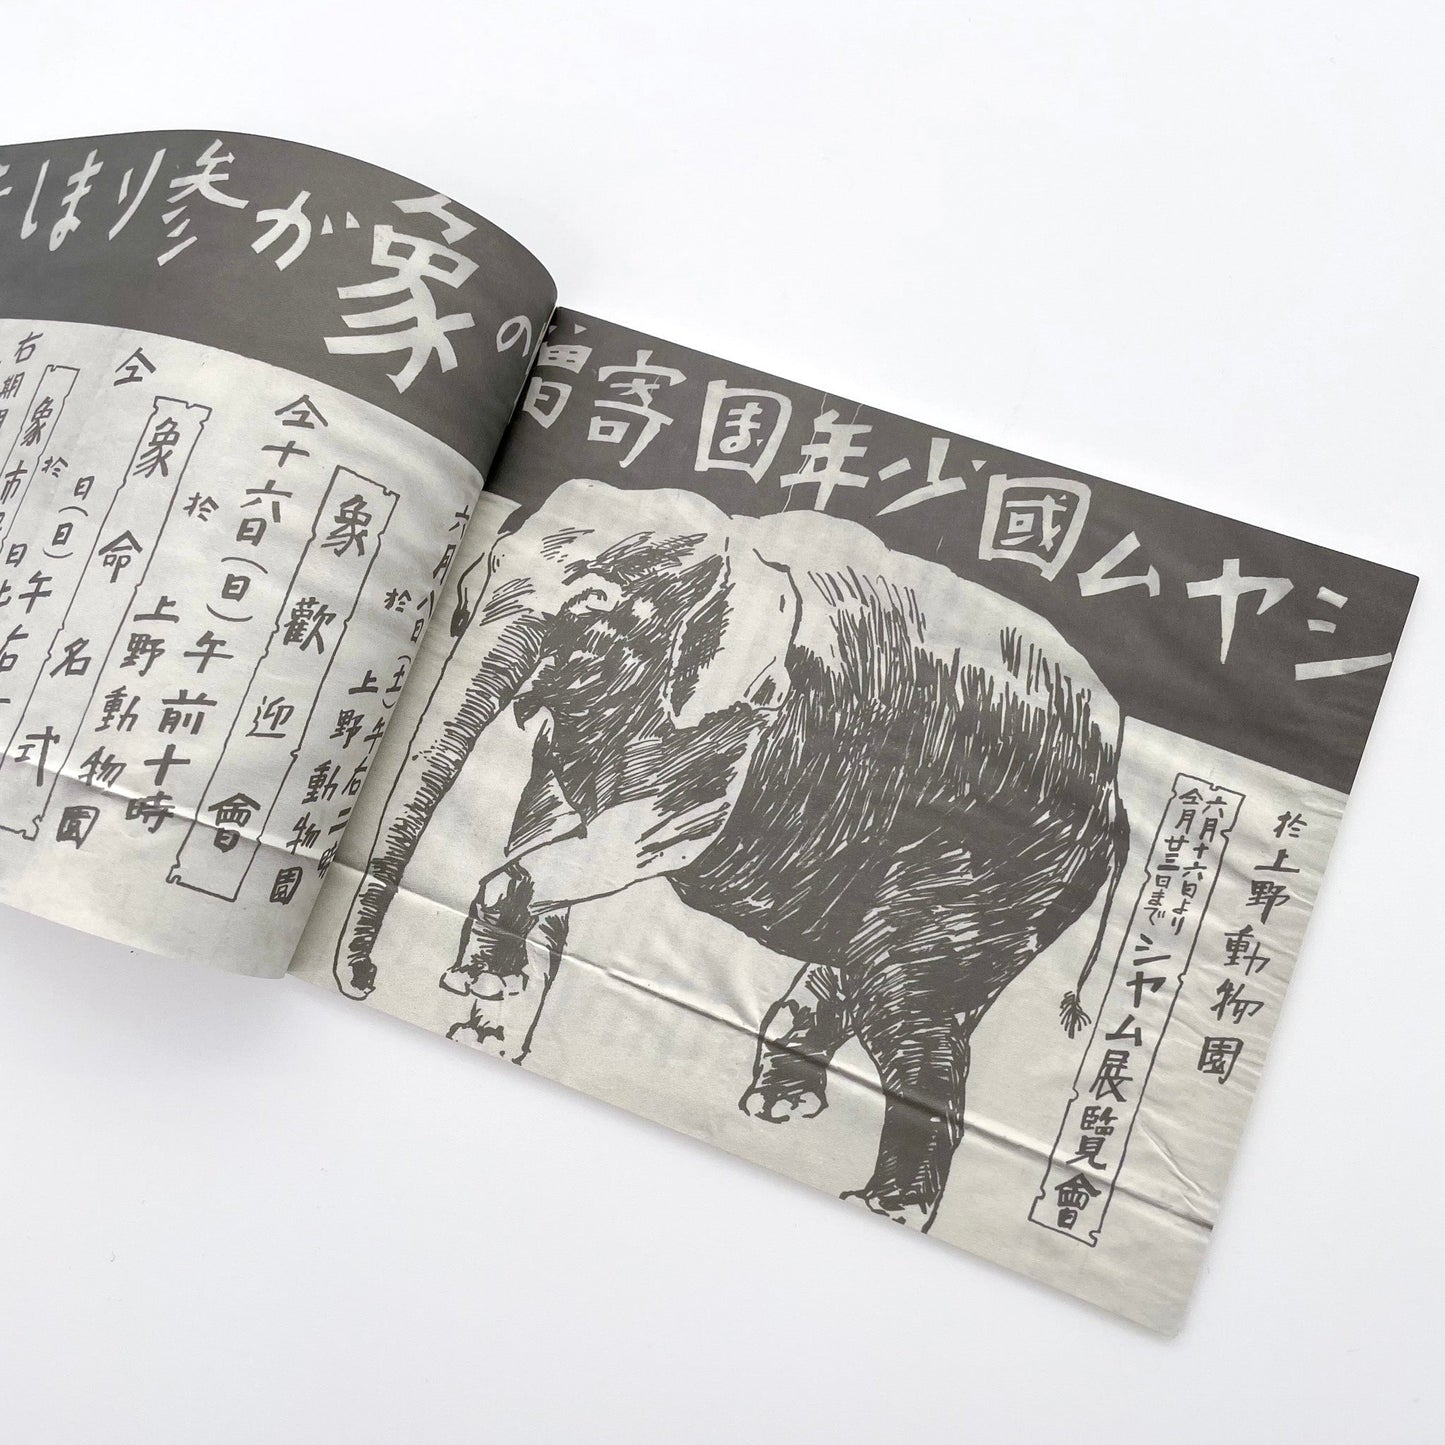 シヤム國少年団寄贈の象が参りまし
於上野動物園
六月十六日より
仝月廿三日まで
シヤム展覽會
六月八日(土)午后二時
於上野動物園
象歡迎會
仝十六日(日)午前十時
於上野動物園
象命名式
仝日(日)午后一
於日比
象市民
右期間